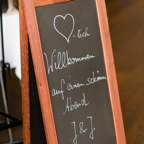 ♡-lich
Willkommen
auf einen schönen
Abend
J & J